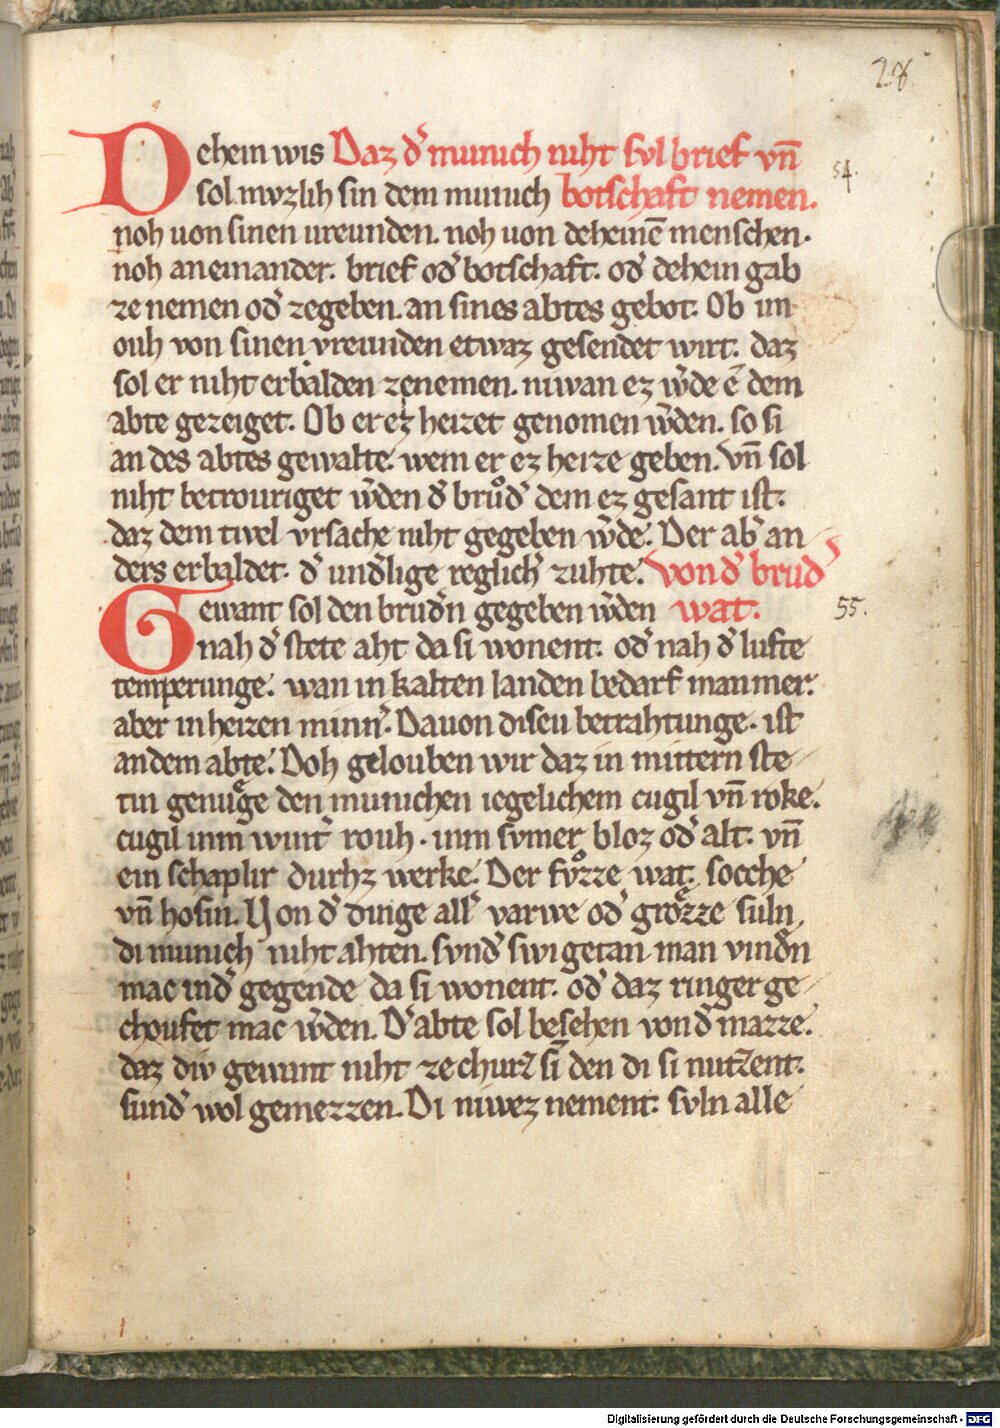 28
Dehein wis Daz d̄ munich niht svl brief vn̄
sol mvzlih sin dem munich botschaft nemen.
54.
noh uon sinen ureunden. noh uon deheinē menschen.
noh an einander. brief od̄ botschaft. od̄ dehein gab
ze nemen od̄ zegeben. an sines abtes gebot. Ob im
ouh von sinen vreunden etwaz gesendet wirt. daz
sol er niht erbalden zenemen. niwan ez w̄de ē dem
abte gezeiget. Ob er ez heizet genomen w̄den. so si
an des abtes gewalte. wem er ez heize geben. Vn̄ sol
niht betrouriget w̄den d̄ brůd̄ dem ez gesant ist.
daz dem tivel vrsache niht gegeben w̄de. Der ab̄ an
ders erbaldet. d̄ und̄lige reglich̄ zuhte. Von d̄ brud̄
Gewant sol den brud̄n gegeben w̄den wat.
55.
nah d̄ stete aht da si wonent. od̄ nah d̄ lufte
temperunge. wan in kalten landen bedarf man mer.
aber in heizen minn̄. Dauon diseu betrahtunge. ist
an dem abte. Doh gelouben wir daz in mittern ste
tin genuͤge den munichen iegelichem cugil vn̄ roke.
cugil inm wint̄ rouh. inm svmer bloz od̄ alt. vn̄
ein schaplir durhz werke. Der fv̊zze wat. socche
vn̄ hosin. Von d̄ dinge all̄ varwe od̄ groͤzze suln
di munich niht ahten. svnd̄ swi getan man vind̄n
mac in d̄ gegende da si wonent. od̄ daz ringer ge
choufet mac w̄den. D̄ abte sol besehen von d̄ mazze.
daz div gewant niht ze churz sī den di si nutzent.
sund̄ wol gemezzen. Di niwez nement. svln alle
Digitalisierung gefördert durch die Deutsche Forschungsgemeinschaft - DFG